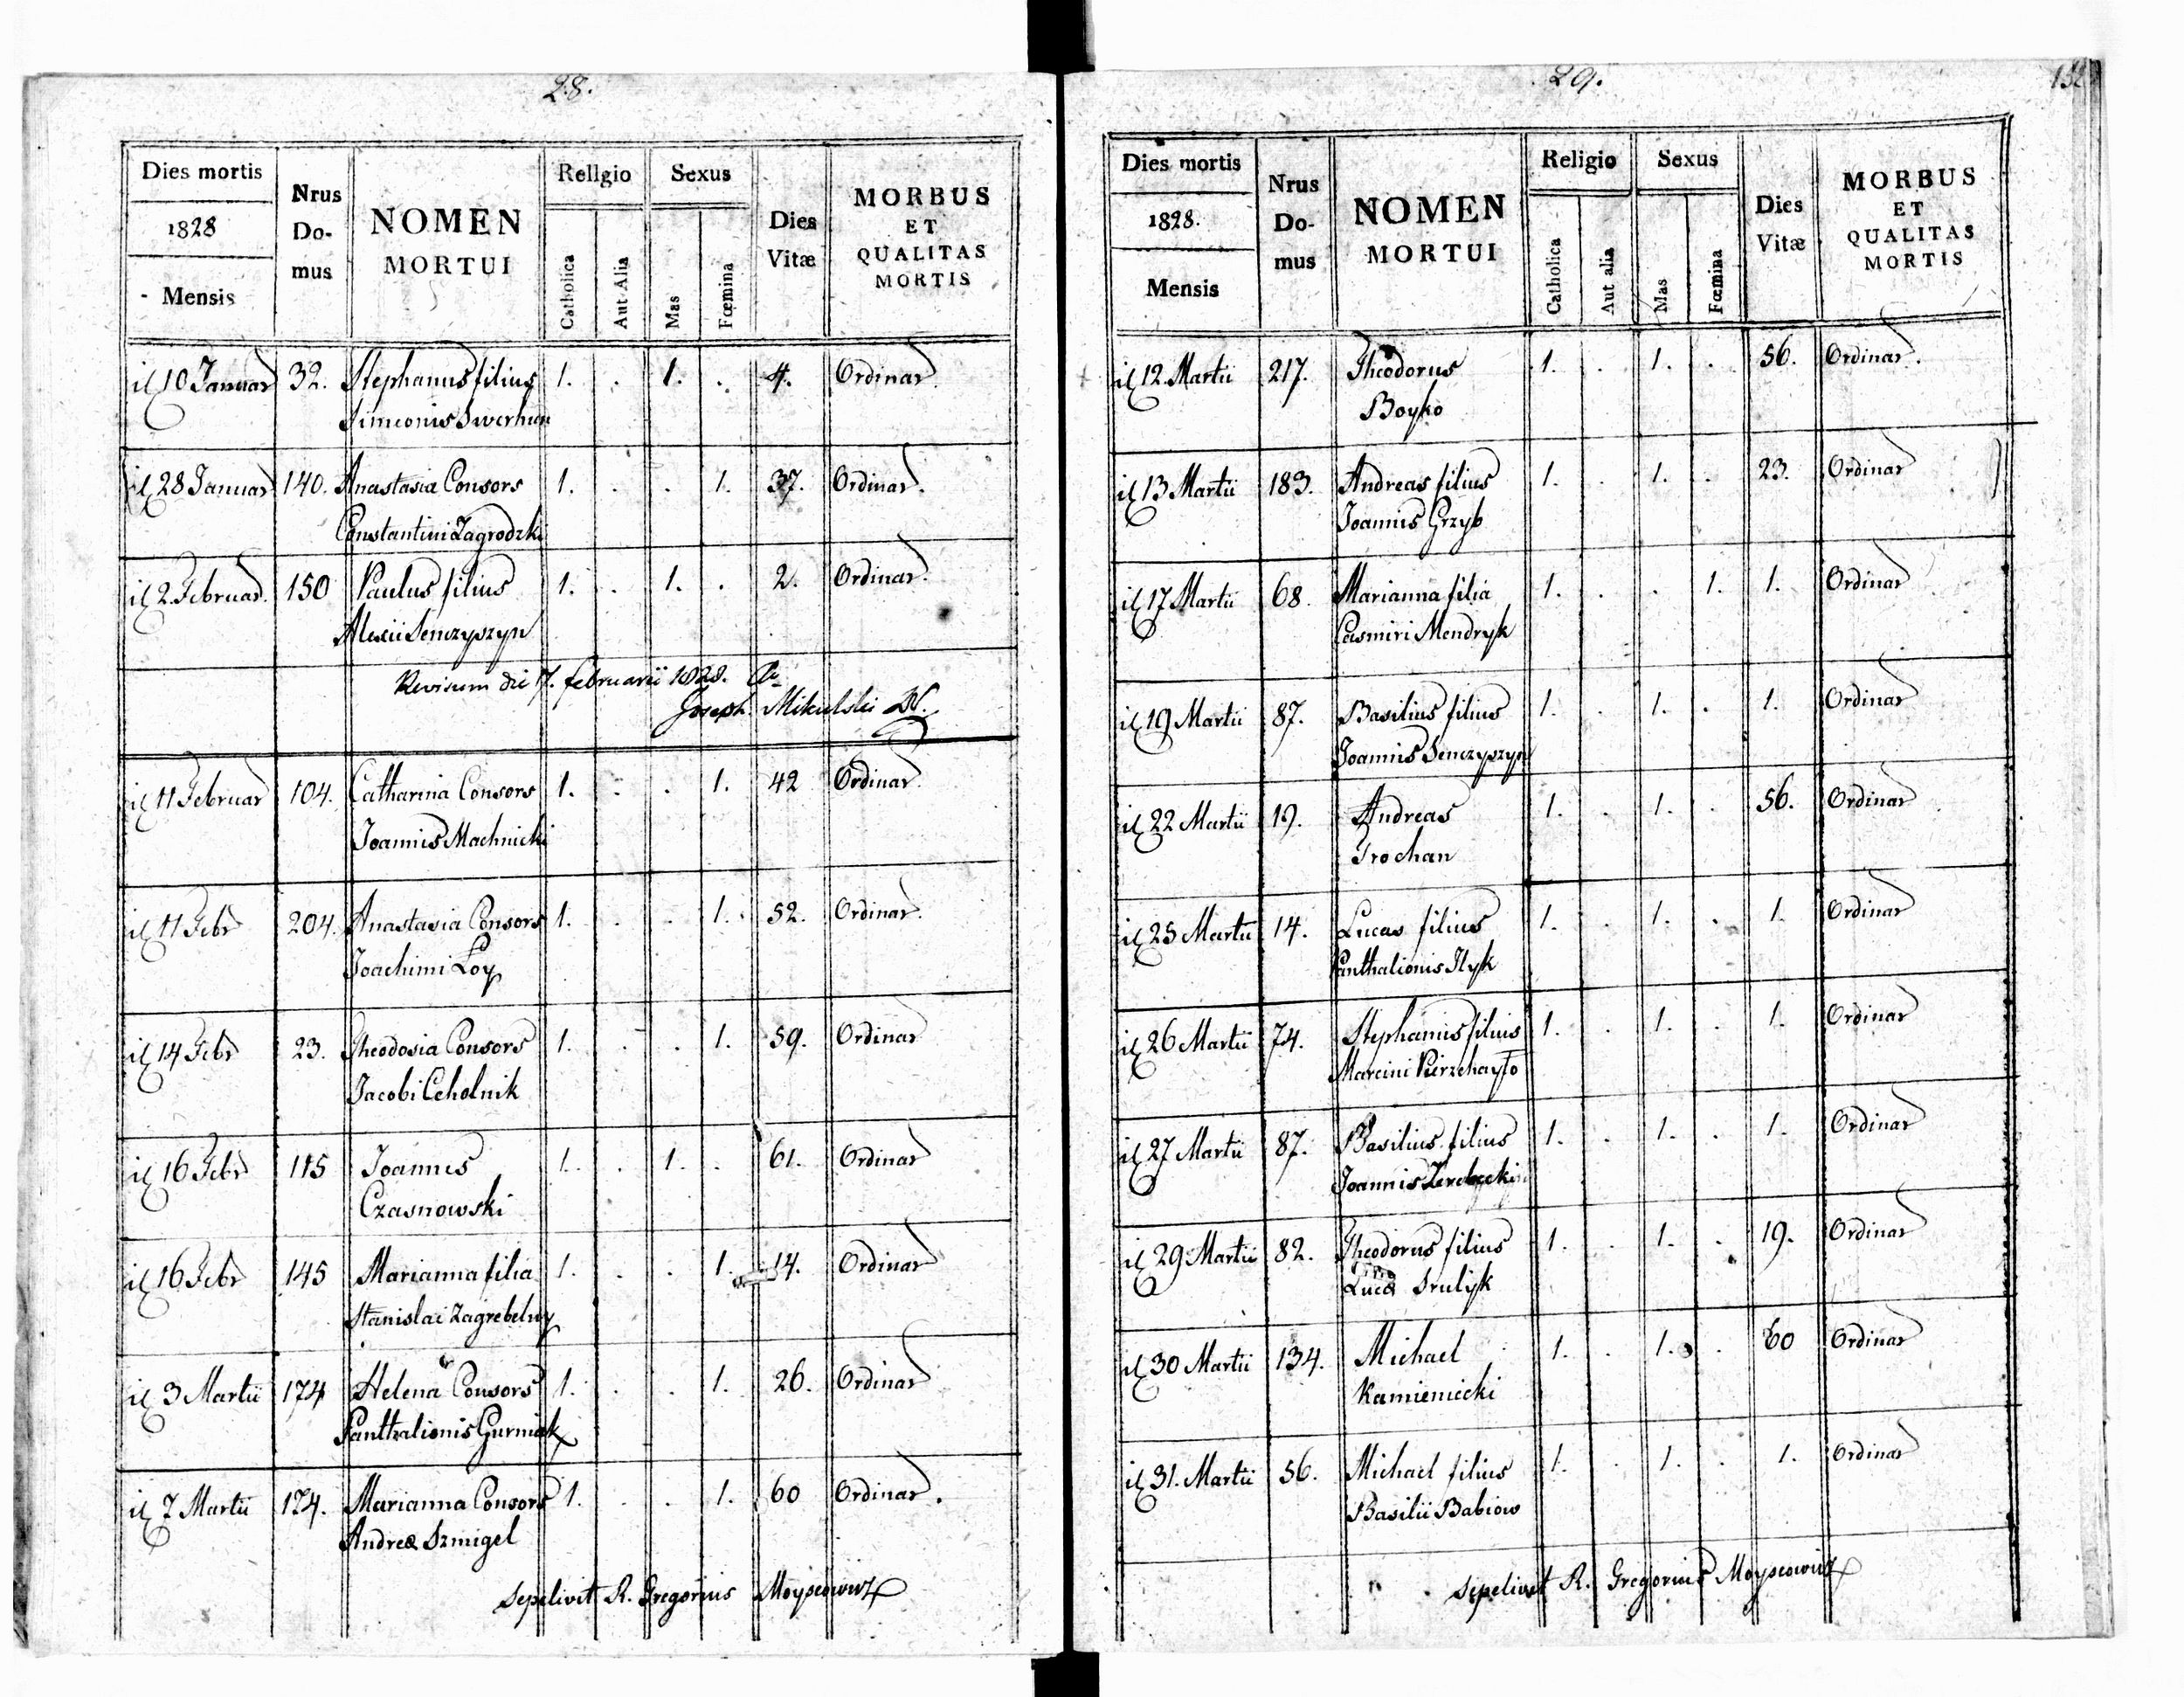 28.
Dies mortis
1828
Mensis
Nrus
Do-
mus
NOMEN
MORTUI
Religio
Catholica
Aut Alia
Sexus
Mas
Fœmina
Dies
Vitæ
MORBUS
ET
QUALITAS
MORTIS
10 Januar 32. Stephanus filius 1. . 1. . 4. Ordinar
Simeonis Swerhun
28 Januar 140. Anastasia Consors 1. . . 1. 37. Ordinar.
Constantini Zagrodzki
2. Februar. 150 Paulus filius 1. . 1. . 2. Ordinar.
Alexii Senczyszyn
Revisum die 17. februarii 1828.
Joseph. Mikulski
11 Februar 104. Catharina Consors 1. . . 1. 42 Ordinar
Joannis Machnicki
11 Febr 204. Anastasia Consors 1. . . 1. 52. Ordinar.
Joachimi Loy
14 Febr 23. Theodosia Consors 1. . . 1. 59. Ordinar
Jacobi Ceholnik
16 Febr 115 Joannes 1. . 1. . 61. Ordinar
Czasnowski
16 Febr 145 Marianna filia 1. . . 1. 14. Ordinar
Stanislai Zagrebelny
3 Martii 174 Helena Consors 1. . . 1. 26. Ordinar
Panthalionis Gurniak
7 Martii 174. Marianna Consors 1. . . 1. 60 Ordinar.
Andreæ Szmigel
Sepelivit R. Gregorius Moyseowicz
29.
132
Dies mortis
1828.
Mensis
Nrus
Do-
mus
NOMEN
MORTUI
Religio
Catholica
Aut alia
Sexus
Mas
Fœmina
Dies
Vitæ
MORBUS
ET
QUALITAS
MORTIS
12. Martii 217. Theodorus 1. . 1. . 56. Ordinar.
Boyko
13 Martii 183. Andreas filius 1. . 1. . 23. Ordinar
Joannis Grzyb
17 Martii 68. Marianna filia 1. . . 1. 1. Ordinar
Casmiri Mendryk
19 Martii 87. Basilius filius 1. . 1. . 1. Ordinar
Joannis Senczyszyn
22 Martii 19. Andreas 1. . 1. . 56. Ordinar
Trochan
25 Martii 14. Lucas filius 1. . 1. . 1. Ordinar
Panthalionis Ilyk
26 Martii 74. Stephanus filius 1. . 1. . 1. Ordinar
Marcini Pierzchayło
27 Martii 87. Basilius filius 1. . 1. . 1. Ordinar
Joannis
29 Martii 82. Theodorus filius 1. . 1. . 19. Ordinar
Luca Srulyk
30 Martii 134. Michael 1. . 1. . 60 Ordinar
Kamieniecki
31. Martii 56. Michael filius 1. . 1. . 1. Ordinar
Basilii Babiow
Sepelivit R. Gregorius Moyseowicz